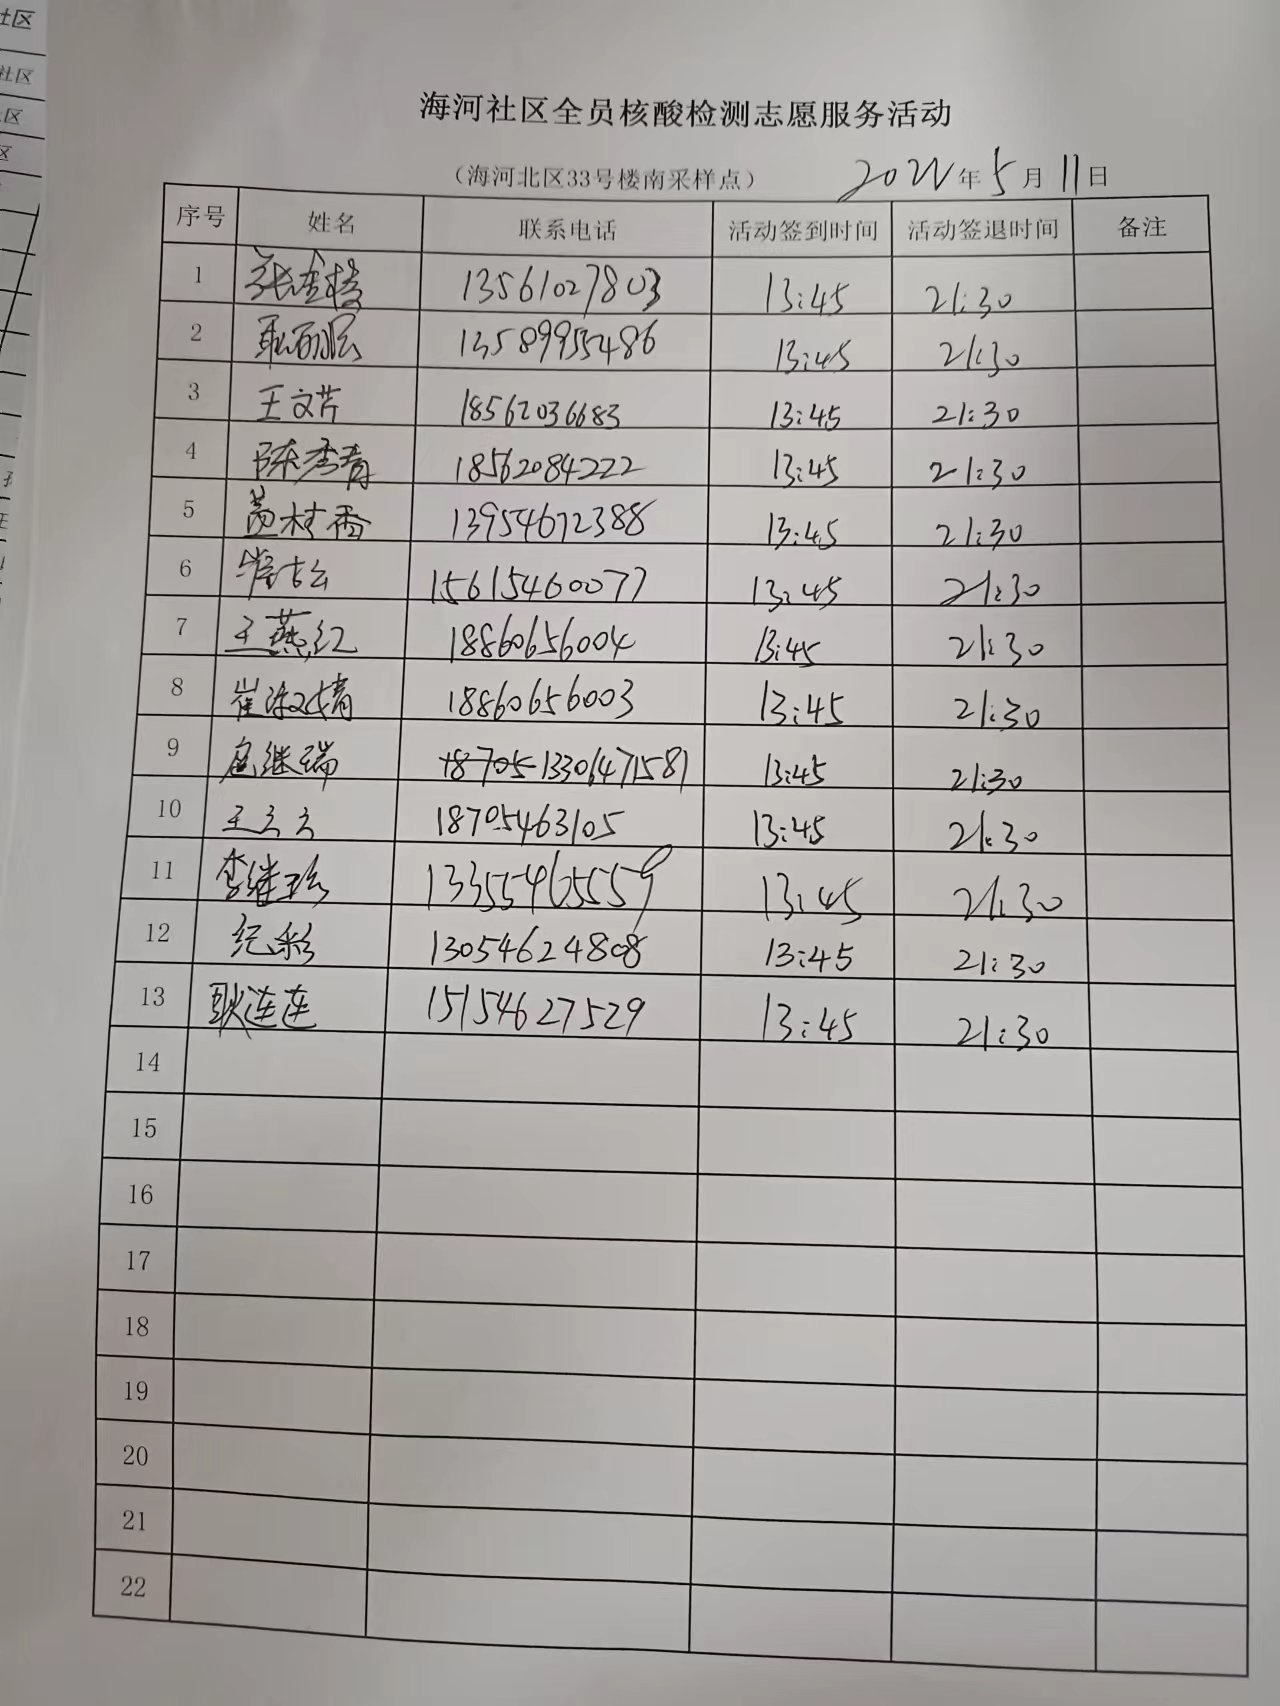 社区
社区
区
区
海河社区全员核酸检测志愿服务活动
（海河北区33号楼南采样点） 2022年5月11日
序号 姓名 联系电话 活动签到时间 活动签退时间 备注
1 13561027803 13:45 21:30
2 13589955486 13:45 21:30
3 王文芹 18562036683 13:45 21:30
4 陈秀青 18562084222 13:45 21:30
5 13954672388 13:45 21:30
6 15615460077 13:45 21:30
7 王燕红 18860656004 13:45 21:30
8 崔淑婧 18860656003 13:45 21:30
9 继瑞 18705 13306471581 13:45 21:30
10 王云云 18705463105 13:45 21:30
11 李继珍 13355465559 13:45 21:30
12 纪彩 13054624808 13:45 21:30
13 耿连连 15154627529 13:45 21:30
14
15
16
17
18
19
20
21
22